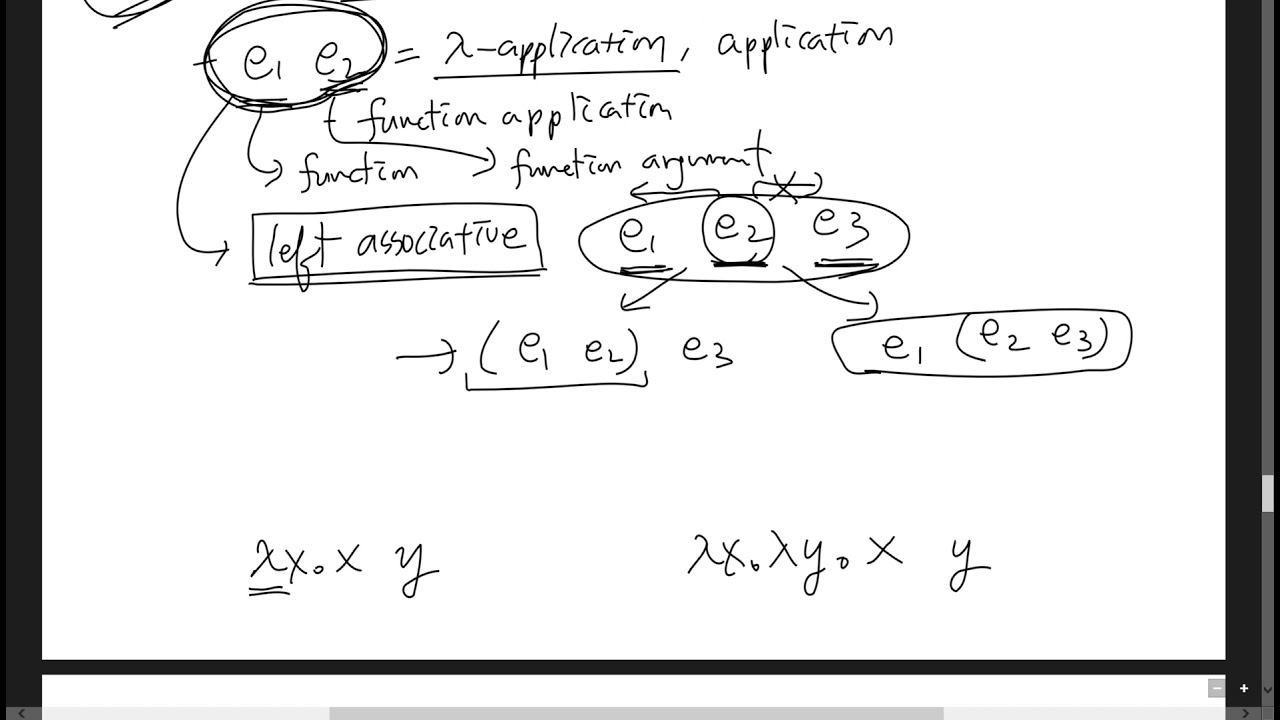 - e₁ e₂ = λ-application, application
- function application
function function argument
left associative e₁ e₂ e₃
→ (e₁ e₂) e₃ e₁ (e₂ e₃)
λx. x y λx. λy. x y